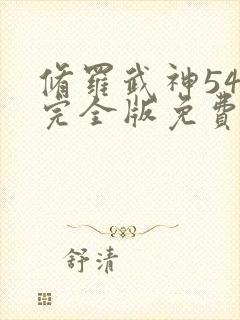 脩羅武神54
完全版免費
舒清